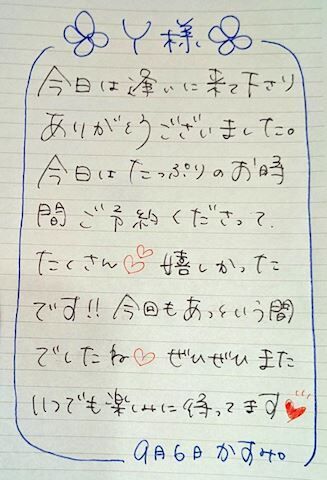 Y様
今日は逢いに来て下さり
ありがとうございました。
今日はたっぷりのお時
間ご予約くださって、
たくさん♡♡嬉しかった
です!!今回もあっという間
でしたね♡ぜひぜひまた
いつでも楽しみに待ってます♥
9月6日 かすみ。